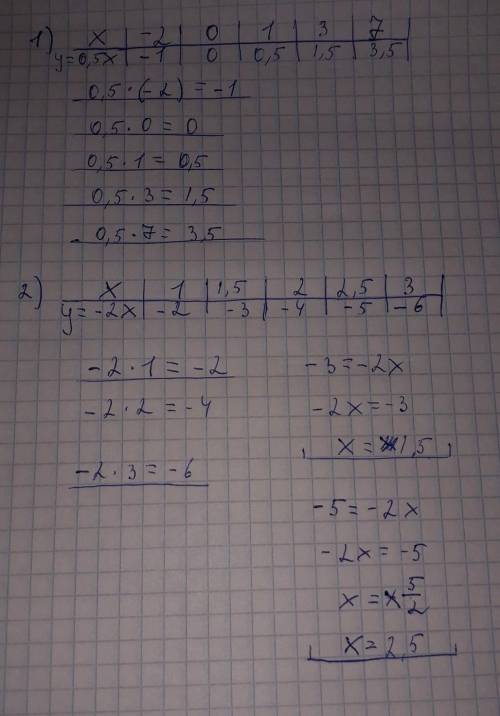 1) x | -2 | 0 | 1 | 3 | 7
y=0,5x | -1 | 0 | 0,5 | 1,5 | 3,5
0,5·(-2) = -1
0,5·0 = 0
0,5·1 = 0,5
0,5·3 = 1,5
0,5·7 = 3,5
2) x | 1 | 1,5 | 2 | 2,5 | 3
y=-2x | -2 | -3 | -4 | -5 | -6
-2·1 = -2
-2·2 = -4
-2·3 = -6
-3 = -2x
-2x = -3
x = 1,5
-5 = -2x
-2x = -5
x = 5/2
x = 2,5